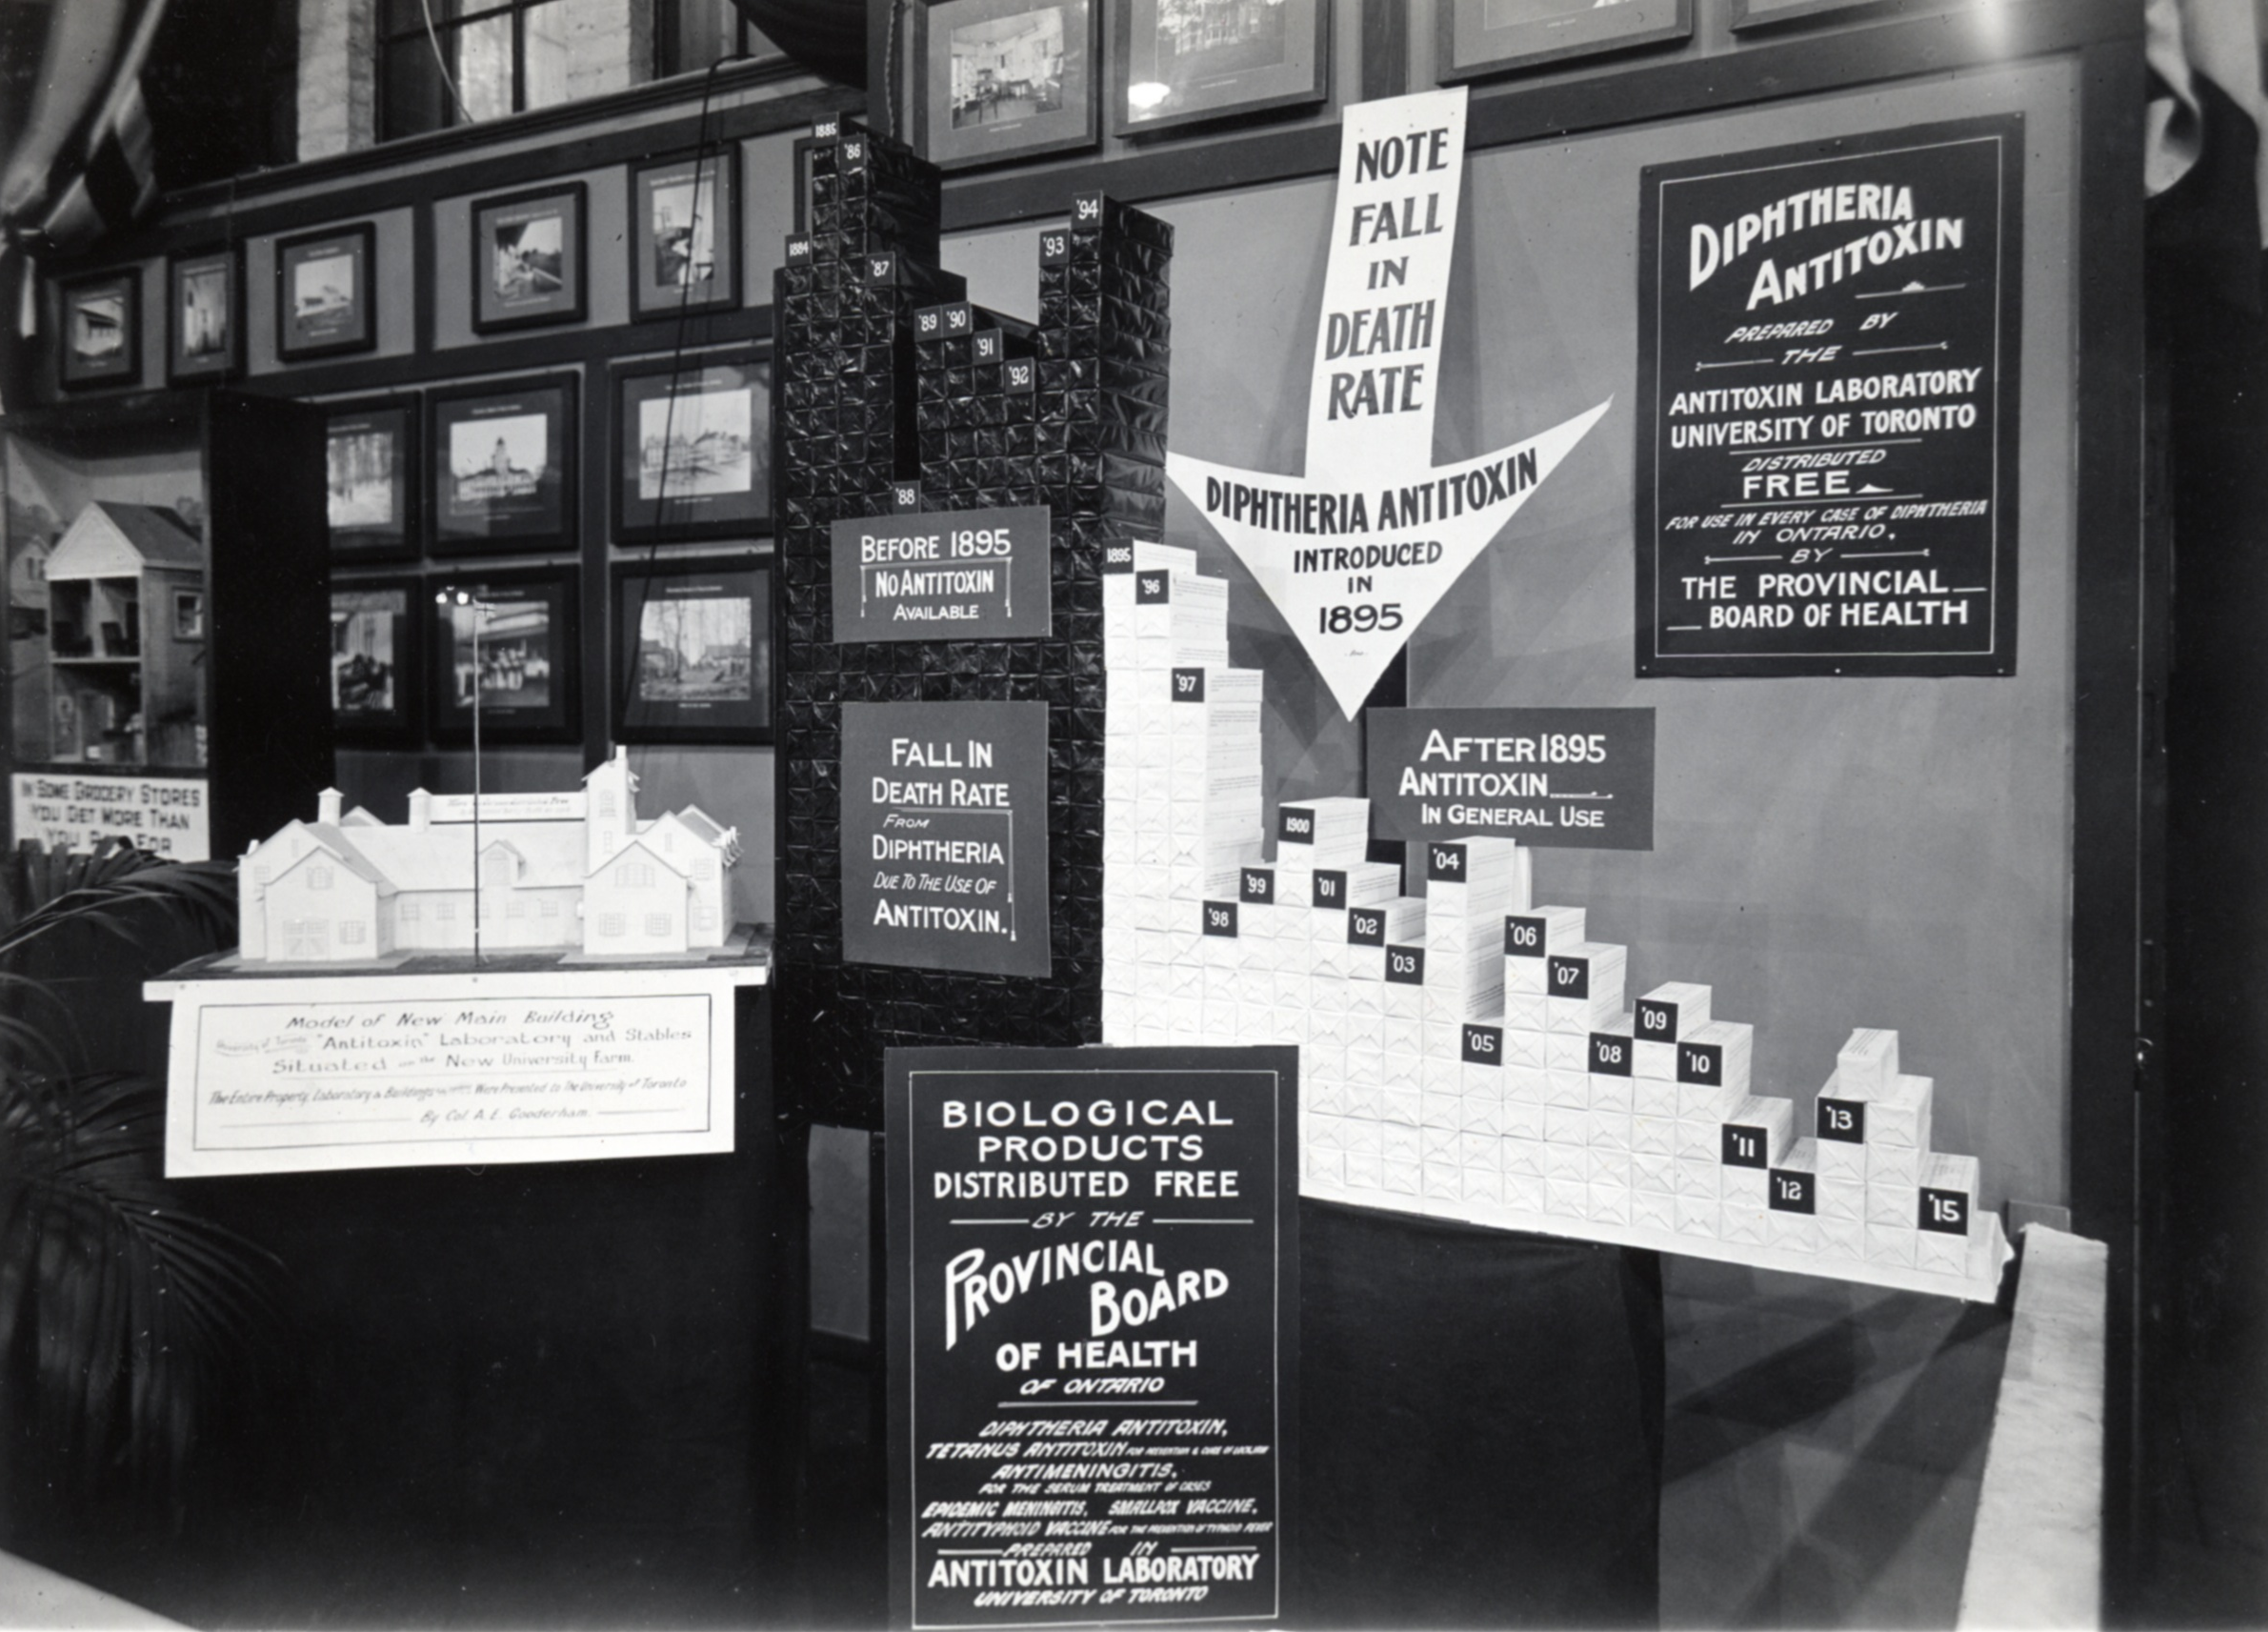 1884
1885
'86
'87
'88
'89
'90
'91
'92
'93
'94
BEFORE 1895
NO ANTITOXIN
AVAILABLE
FALL IN
DEATH RATE
FROM
DIPHTHERIA
DUE TO THE USE OF
ANTITOXIN.
NOTE
FALL
IN
DEATH
RATE
DIPHTHERIA ANTITOXIN
INTRODUCED
IN
1895
DIPHTHERIA
ANTITOXIN
PREPARED BY
THE
ANTITOXIN LABORATORY
UNIVERSITY OF TORONTO
DISTRIBUTED
FREE
FOR USE IN EVERY CASE OF DIPHTHERIA
IN ONTARIO.
BY
THE PROVINCIAL
BOARD OF HEALTH
AFTER 1895
ANTITOXIN
IN GENERAL USE
1895
'96
'97
'98
'99
1900
'01
'02
'03
'04
'05
'06
'07
'08
'09
'10
'11
'12
'13
'15
IN SOME GROCERY STORES
YOU GET MORE THAN
YOU PAY FOR
Model of New Main Building
University of Toronto "Antitoxin" Laboratory and Stables
Situated on the New University Farm.
The Entire Property, Laboratory & Buildings Were Presented to The University of Toronto
By Col. A. E. Gooderham.
BIOLOGICAL
PRODUCTS
DISTRIBUTED FREE
BY THE
PROVINCIAL
BOARD
OF HEALTH
OF ONTARIO
DIPHTHERIA ANTITOXIN,
TETANUS ANTITOXIN FOR PREVENTION & CURE OF LOCKJAW
ANTIMENINGITIS,
FOR THE SERUM TREATMENT OF CASES
EPIDEMIC MENINGITIS, SMALLPOX VACCINE,
ANTITYPHOID VACCINE FOR THE PREVENTION OF TYPHOID FEVER
PREPARED IN
ANTITOXIN LABORATORY
UNIVERSITY OF TORONTO